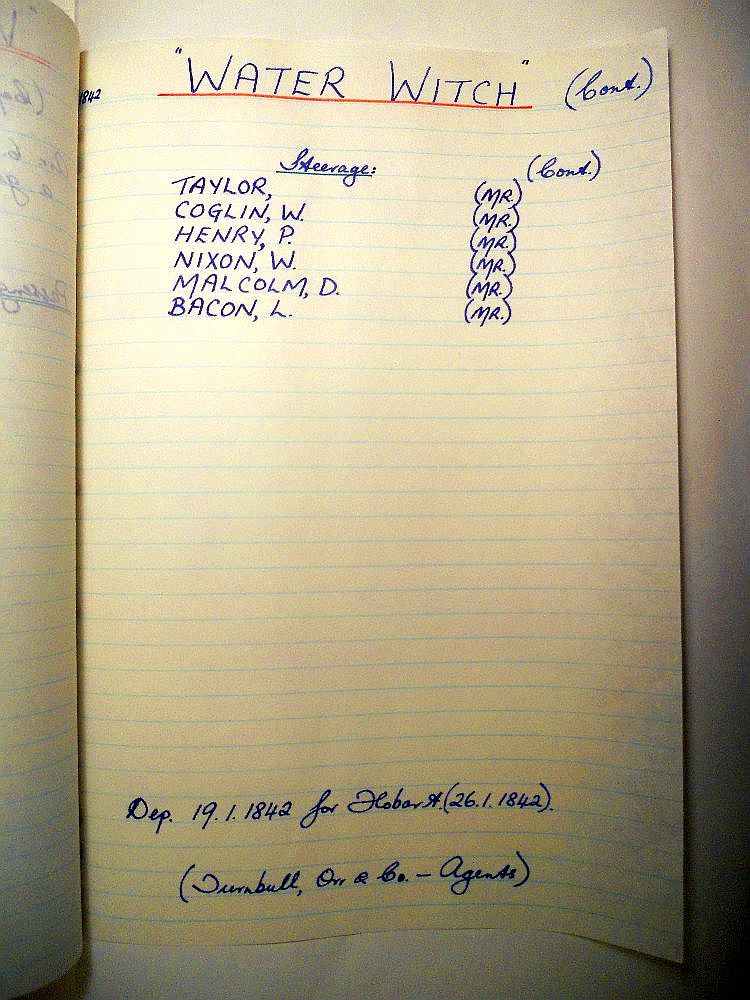 "WATER WITCH" (Cont.)
1842
Steerage: (Cont.)
TAYLOR, (MR.)
COGLIN, W. (MR.)
HENRY, P. (MR.)
NIXON, W. (MR.)
MALCOLM, D. (MR.)
BACON, L. (MR.)
Dep. 19.1.1842 for Hobart (26.1.1842).
(Turnbull, Orr & Co. – Agents)